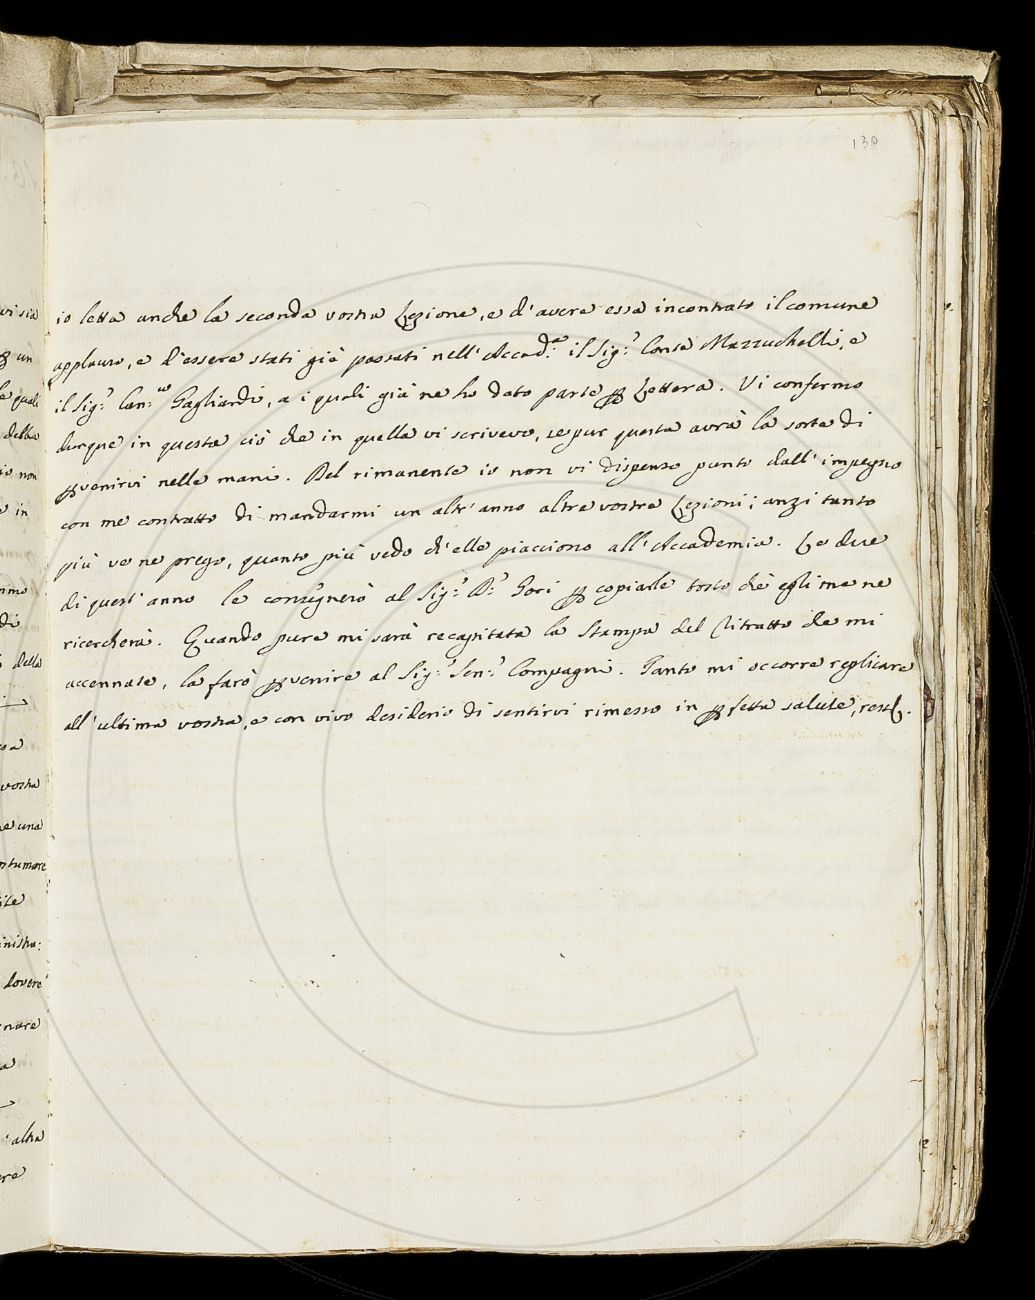 130
io letta anche la seconda vostra Lezione, e d'avere essa incontrato il comune
applauso, e d'essere stati già passati nell'Accad.ª il Sig.r Conte Mazzuchelli, e
il Sig.r Can.co Gagliardi, a i quali già ne ho dato parte per Lettera. Vi confermo
dunque in questa ciò che in quella vi scrivevo, se pur questa avrà la sorte di
pervenirvi nelle mani. Del rimanente io non vi dispenso punto dall'impegno
con me contratto di mandarmi un altr'anno altre vostre Lezioni; anzi tanto
più ve ne prego, quanto più vedo ch'elle piacciono all'Accademia. Le due
di quest'anno le consegnerò al Sig.r D.r Gori per copiarle tosto chè egli me ne
ricercherà. Quando pure mi sarà recapitata la Stampa del Ritratto che mi
accennate, la farò pervenire al Sig.r Sen.r Compagni. Tanto mi occorre replicare
all'ultima vostra, e con vivo desiderio di sentirvi rimesso in perfetta salute, rest
vi sia
un
le quali
della
io non
e in
di
della
vostra
una
costumare
dovere
altra